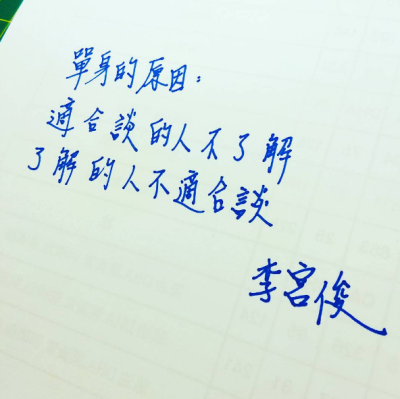 單身的原因：
適合談的人不了解
了解的人不適合談
李宮俊